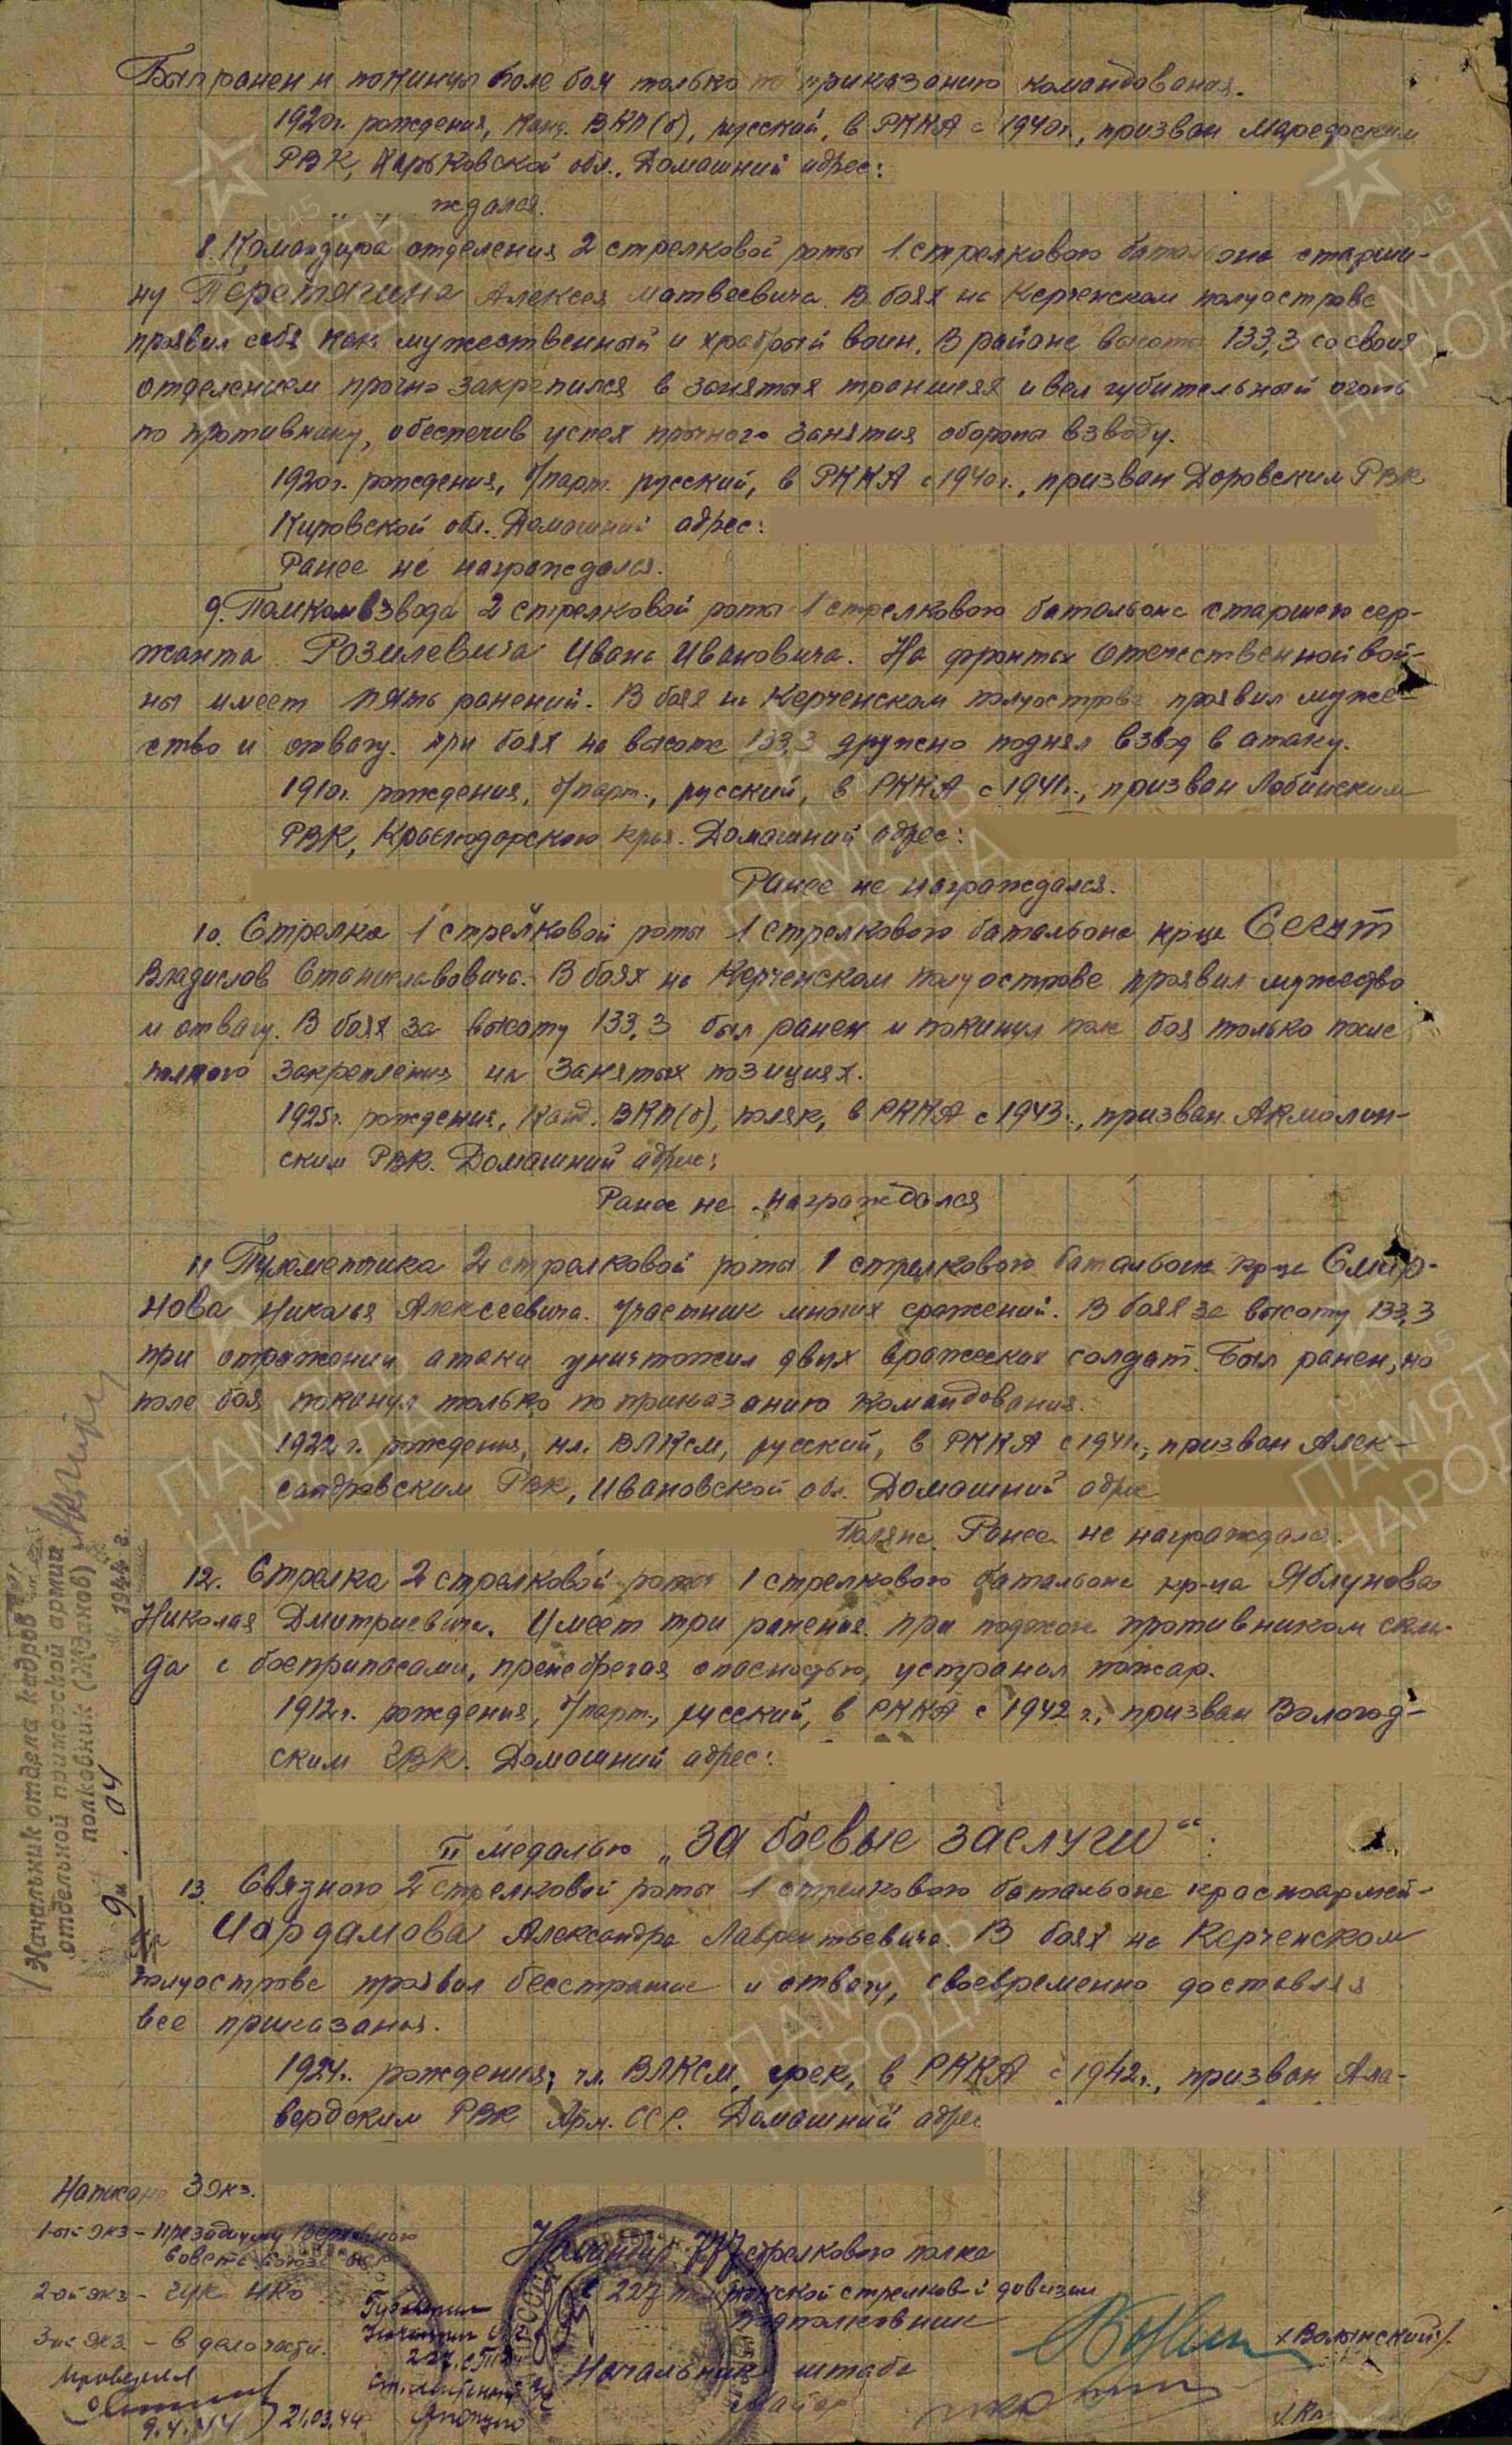 Был ранен и покинул поле боя только по приказанию командования.
1920г. рождения, канд. ВКП(б), русский, в РККА с 1940г., призван
РВК, Харьковской обл., Домашний адрес:
ждался.
8. Командира отделения 2 стрелковой роты 1 стрелкового батальона старши-
ну Перетягина Алексея Матвеевича. В боях на Керченском полуострове
проявил себя как мужественный и храбрый воин. В районе высоты 133,3 со своим
отделением прочно закрепился в занятых траншеях и вел губительный огонь
по противнику, обеспечив успех прочного занятия обороны взводу.
1920г. рождения, б/парт. русский, в РККА с 1940г., призван Даровским РВК
Кировской обл. Домашний адрес:
Ранее не награждался.
9. Помкомвзвода 2 стрелковой роты 1 стрелкового батальона старшего сер-
жанта Розилевича Ивана Ивановича. На фронтах Отечественной вой-
ны имеет пять ранений. В боях на Керченском полуострове проявил муже-
ство и отвагу. При боях на высоте 133,3 дружно поднял взвод в атаку.
1910г. рождения, б/парт., русский, в РККА с 1941г., призван Лабинским
РВК, Краснодарского края. Домашний адрес:
Ранее не награждался.
10. Стрелка 1 стрелковой роты 1 стрелкового батальона кр-ца
Владислав Станиславовича. В боях на Керченском полуострове проявил мужество
и отвагу. В боях за высоту 133,3 был ранен и покинул поле боя только после
полного закрепления на занятых позициях.
1925г. рождения, канд. ВКП(б), поляк, в РККА с 1943г., призван Акмолин-
ским РВК. Домашний адрес:
Ранее не награждался
11 Пулеметчика 2 стрелковой роты 1 стрелкового батальона кр-ца Смир-
нова Николая Алексеевича. Участник многих сражений. В боях за высоту 133,3
при отражении атаки уничтожил двух вражеских солдат. Был ранен, но
поле боя покинул только по приказанию командования.
1922г. рождения, чл. ВЛКСМ, русский, в РККА с 1941г., призван Алек-
сандровским РВК, Ивановской обл. Домашний адрес
Поляна. Ранее не награждался.
12. Стрелка 2 стрелковой роты 1 стрелкового батальона кр-ца Яблунова
Николая Дмитриевича. Имеет три ранения. При поджоге противником скла-
да с боеприпасами, пренебрегая опасностью, устранил пожар.
1912г. рождения, б/парт., русский, в РККА с 1942г., призван Вологод-
ским ГВК. Домашний адрес:
II медалью „За боевые заслуги“:
13. Связного 2 стрелковой роты 1 стрелкового батальона красноармей-
ца Чардамова Александра Лаврентьевича. В боях на Керченском
полуострове проявил бесстрашие и отвагу, своевременно доставляя
все приказания.
1924г. рождения, чл. ВЛКСМ, грек, в РККА с 1942г., призван Ала-
вердским РВК Арм. ССР. Домашний адрес
Написано 3 экз.
1-ый экз - Президиуму Верховного
Совета Союза
2-ой экз - ГУК НКО
3-ий экз. - в дело части.
Проверил
9.4.44
21.03.44
Командир 777 стрелкового полка
227 стрелковой дивизии
подполковник
/Волынский/.
Начальник штаба
майор
/Начальник отдела кадров
отдельной приморской армии
полковник (Жданов)
9 04 1944 г.
ПАМЯТЬ
НАРОДА
1941-1945